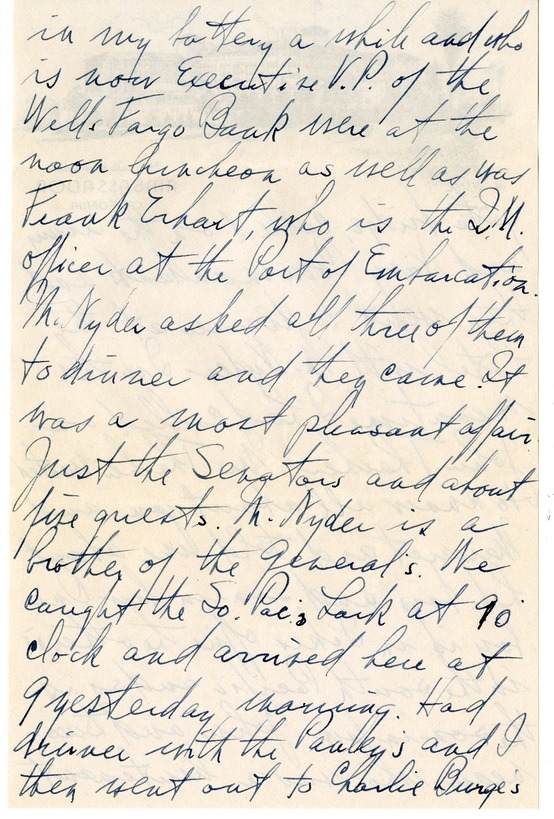 in my battery a while and who
is now Executive V.P. of the
Wells Fargo Bank were at the
noon luncheon as well as was
Frank Erhart, who is the Q.M.
officer at the Port of Embarcation.
Mc.Nyder asked all three of them
to dinner and they came. It
was a most pleasant affair.
Just the Senators and about
five guests. Mc. Nyder is a
brother of the General's. We
caught the So. Pac.'s Lark at 9 o'
clock and arrived here at
9 yesterday morning. Had
dinner with the Pauley's and I
then went out to Charlie Burge's